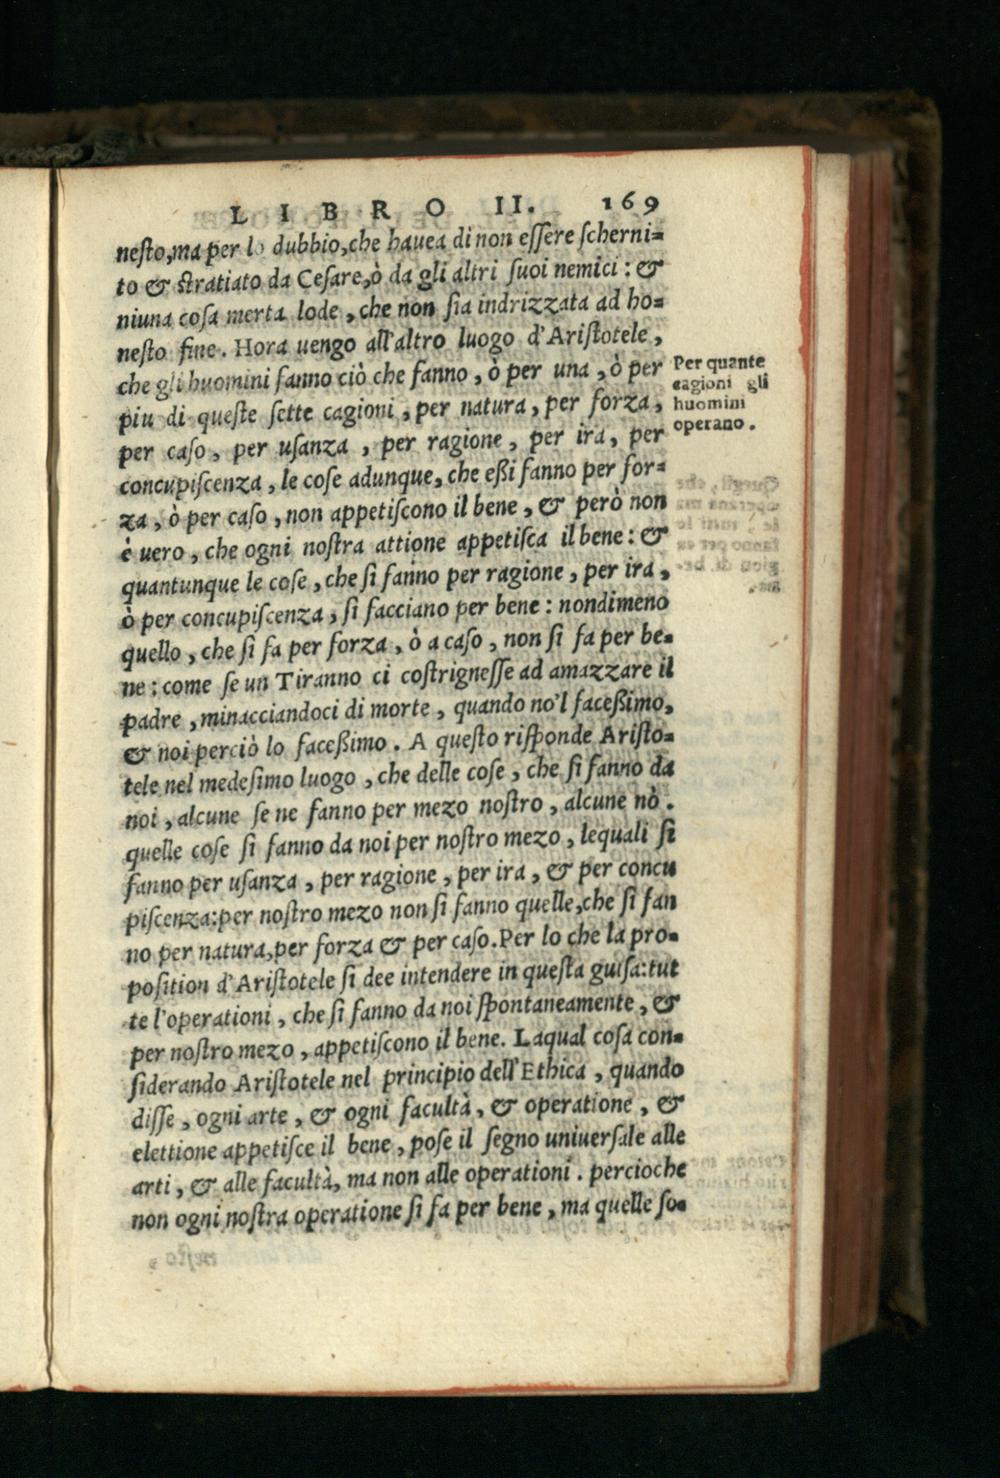 LIBRO II. 169
nesto, ma per lo dubbio, che hauea di non essere scherni=
to & stratiato da Cesare, ò da gli altri suoi nemici : &
niuna cosa merta lode , che non sia indrizzata ad ho=
nesto fine . Hora uengo all'altro luogo d'Aristotele ,
che gli huomini fanno ciò che fanno , ò per una , ò per
piu di queste sette cagioni , per natura , per forza ,
per caso , per usanza , per ragione , per ira , per
concupiscenza , le cose adunque, che eßi fanno per for=
za , ò per caso , non appetiscono il bene , & però non
è uero , che ogni nostra attione appetisca il bene : &
quantunque le cose , che si fanno per ragione , per ira ,
ò per concupiscenza , si facciano per bene : nondimeno
quello , che si fa per forza , ò a caso , non si fa per be=
ne : come se un Tiranno ci costrignesse ad amazzare il
padre , minacciandoci di morte , quando no'l faceßimo,
& noi perciò lo faceßimo . A questo risponde Aristo=
tele nel medesimo luogo , che delle cose , che si fanno da
noi , alcune se ne fanno per mezo nostro , alcune nò .
quelle cose si fanno da noi per nostro mezo , lequali si
fanno per usanza , per ragione , per ira , & per concu
piscenza: per nostro mezo non si fanno quelle, che si fan
no per natura, per forza & per caso. Per lo che la pro=
position d'Aristotele si dee intendere in questa guisa: tut
te l'operationi , che si fanno da noi spontaneamente , &
per nostro mezo , appetiscono il bene. Laqual cosa con=
siderando Aristotele nel principio dell'Ethica , quando
disse , ogni arte , & ogni facultà , & operatione , &
elettione appetisce il bene , pose il segno uniuersale alle
arti , & alle facultà, ma non alle operationi . percioche
non ogni nostra operatione si fa per bene , ma quelle so=
Per quante
cagioni gli
huomini
operano .